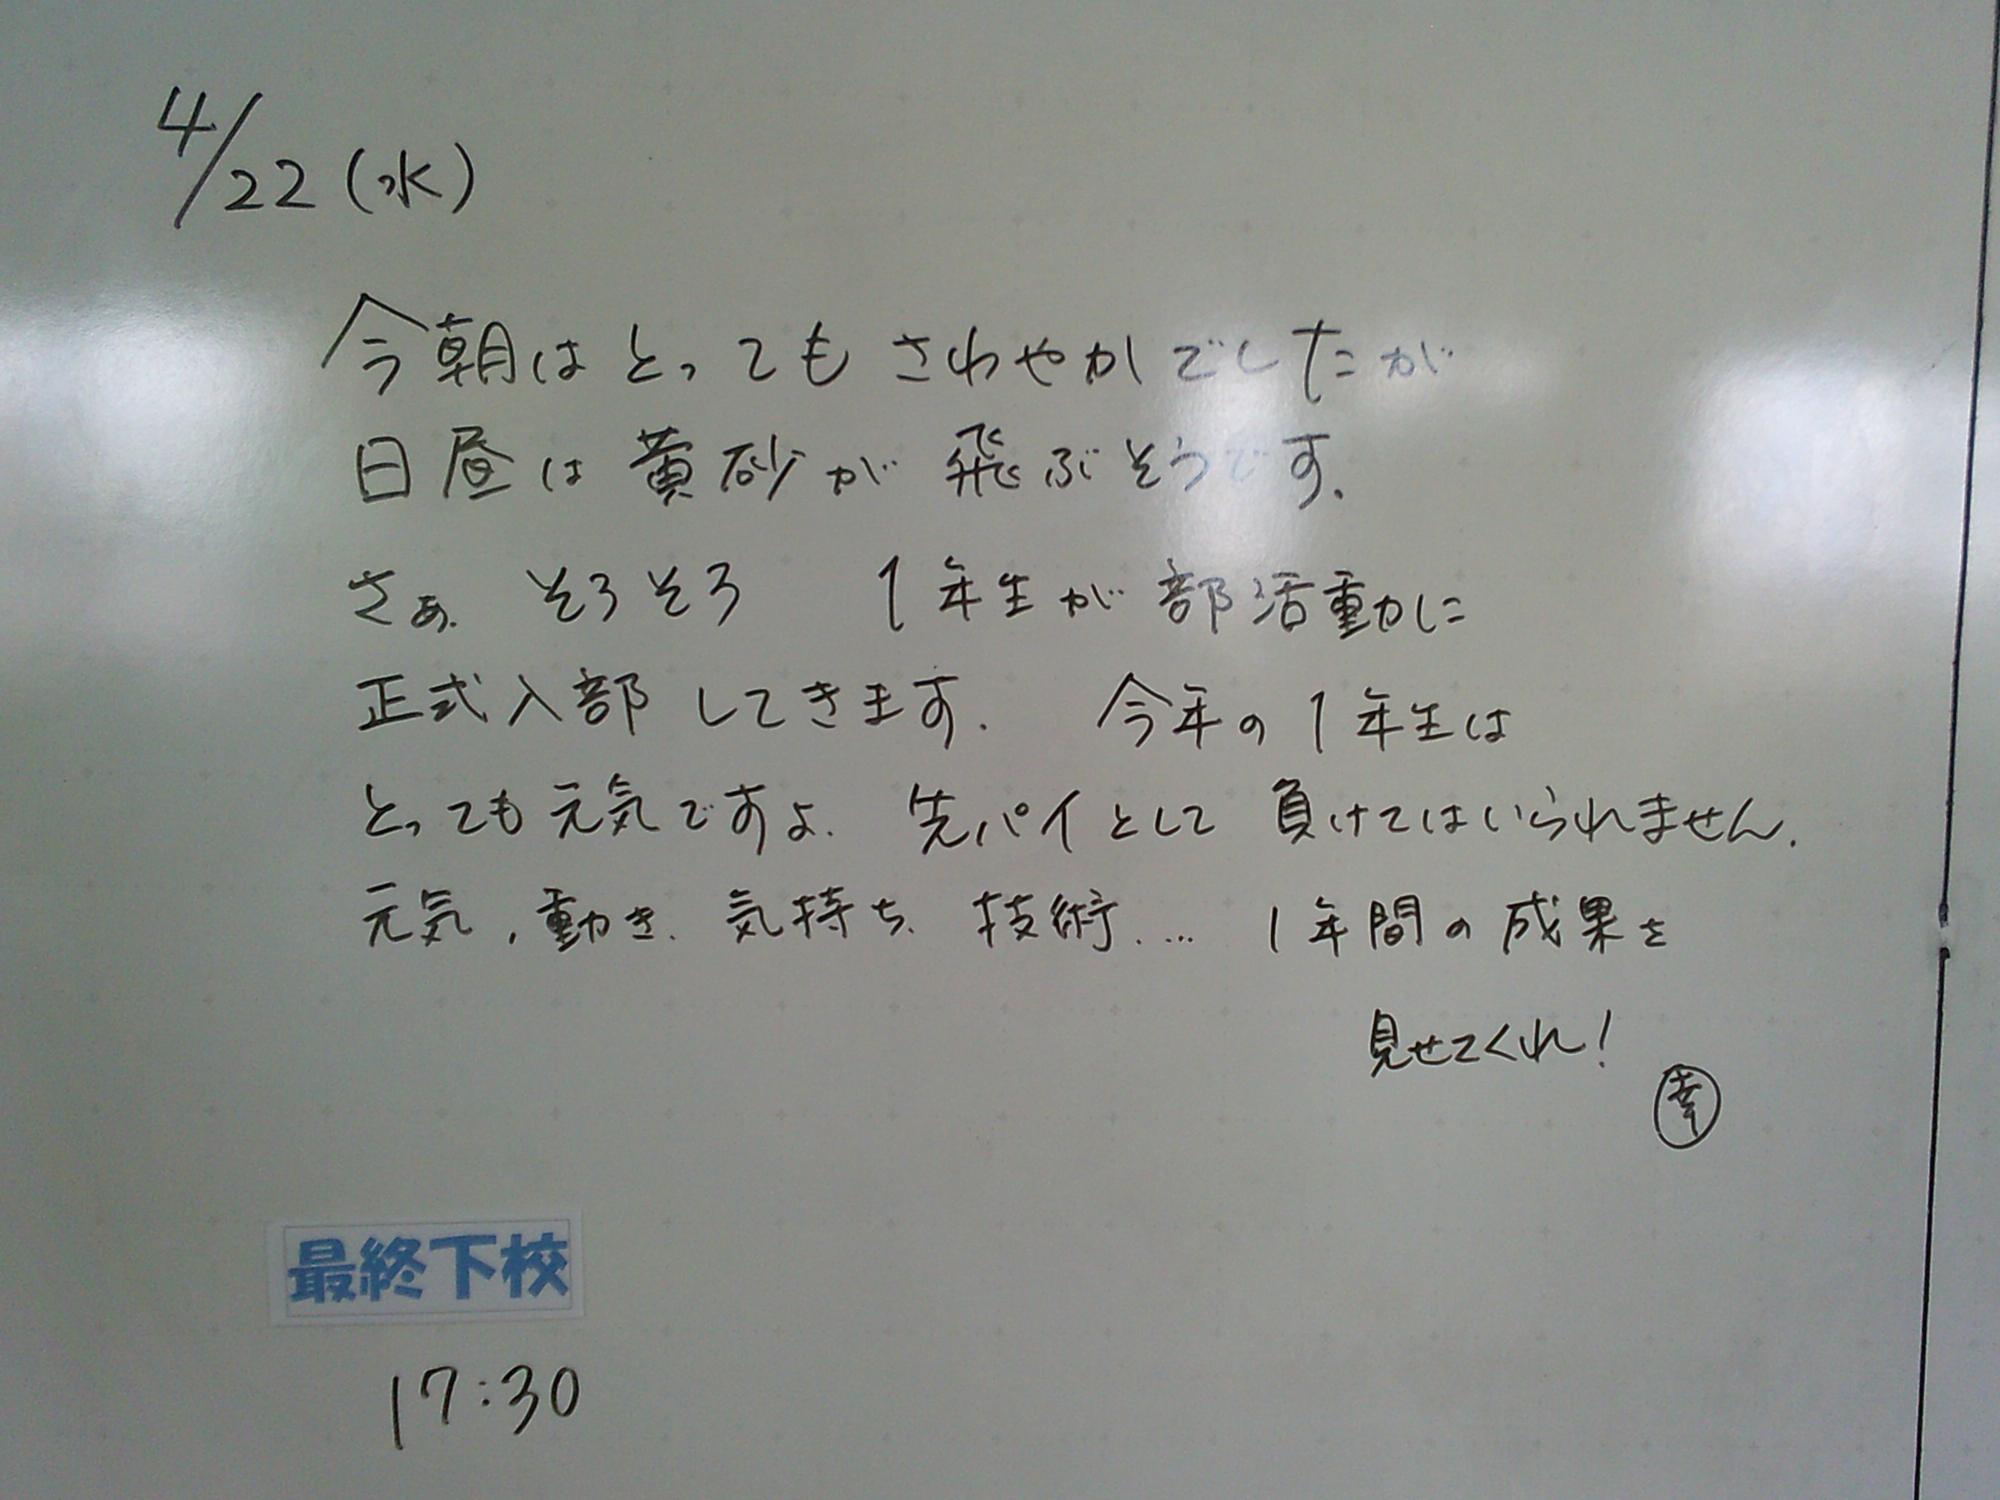 4/22(水)
今朝はとってもさわやかでしたが
日昼は黄砂が飛ぶそうです.
さぁ. そろそろ 1年生が部活動に
正式入部してきます. 今年の1年生は
とっても元気ですよ. 先パイとして負けてはいられません.
元気,動き. 気持ち. 技術.… 1年間の成果を
見せてくれ!
幸
最終下校
17:30